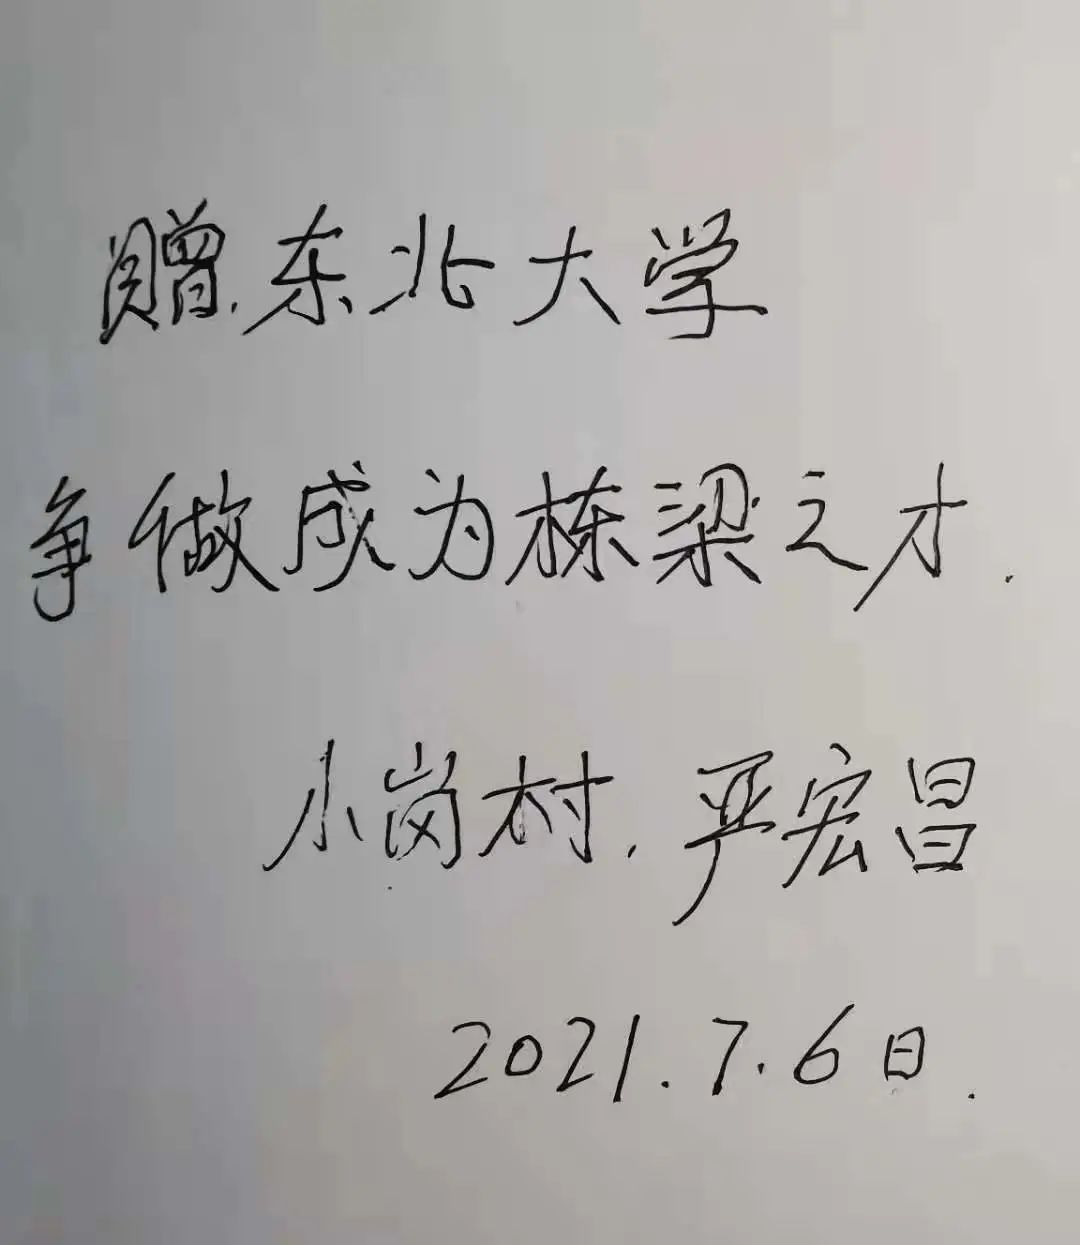 赠.东北大学
争做成为栋梁之才.
小岗村.严宏昌
2021.7.6日.